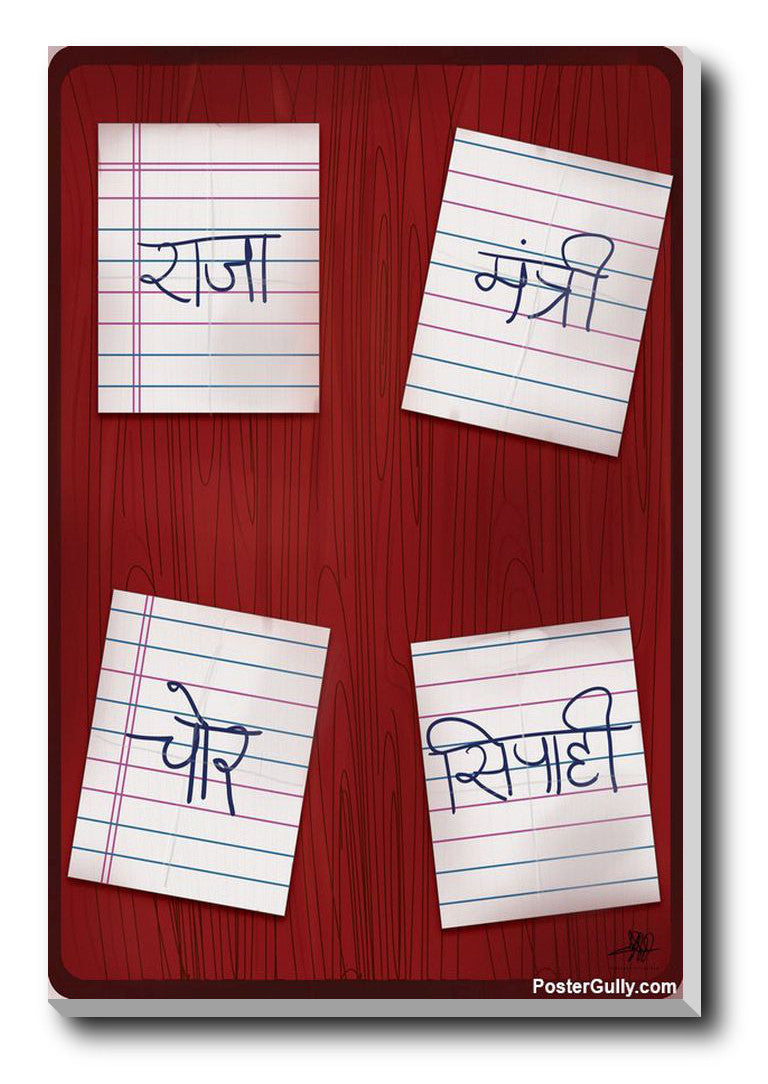 राजा
मंत्री
चोर
सिपाही
PosterGully.com